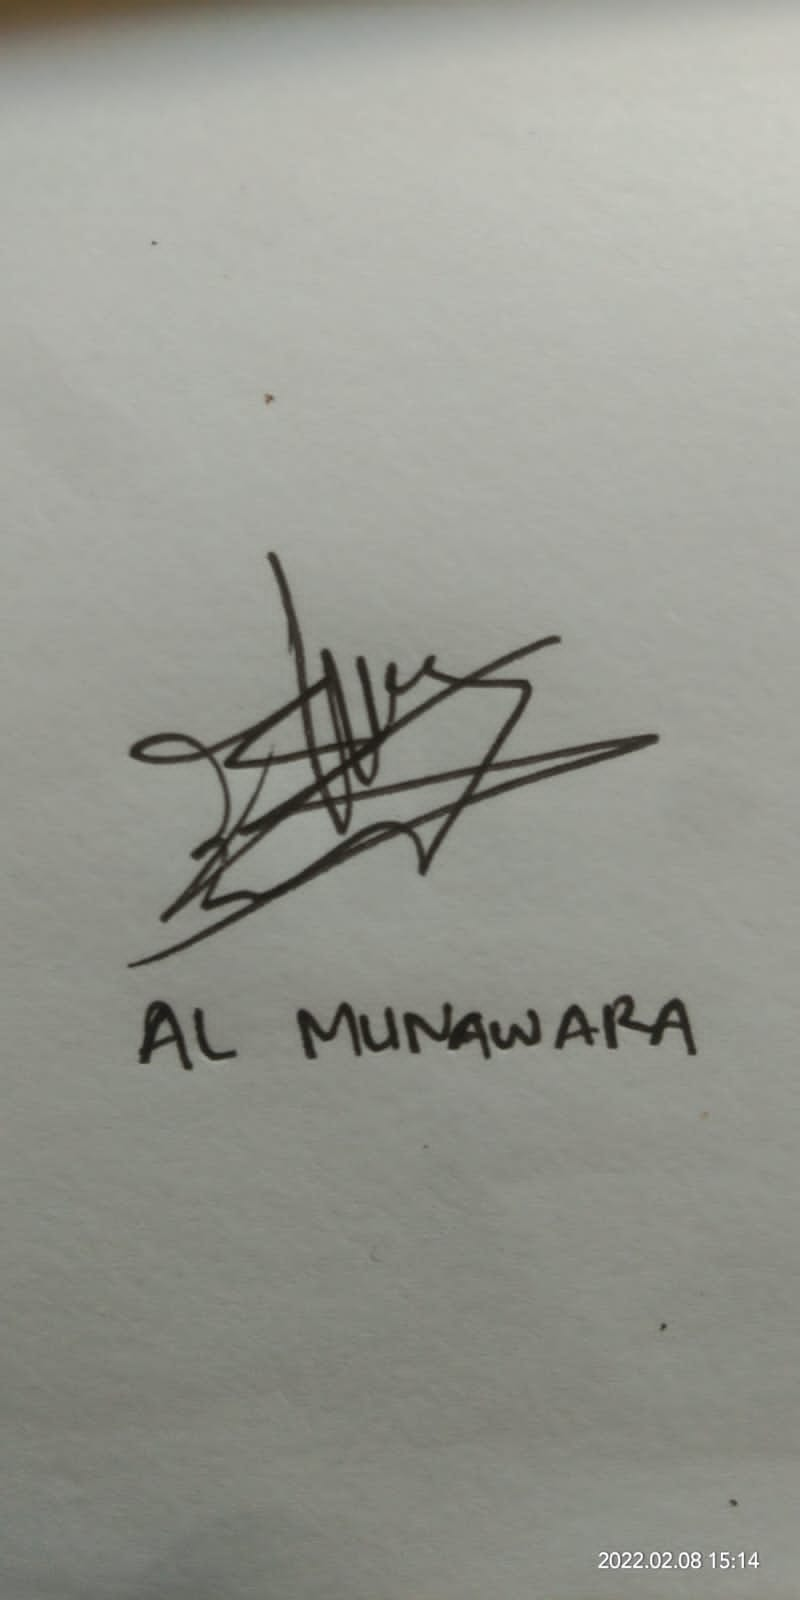 AL MUNAWARA
2022.02.08 15:14